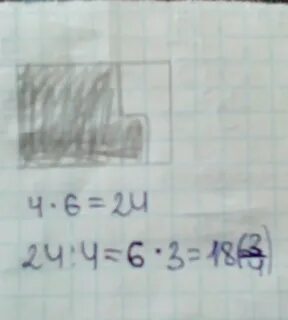 4·6=24
24:4=6·3=18(3/4)